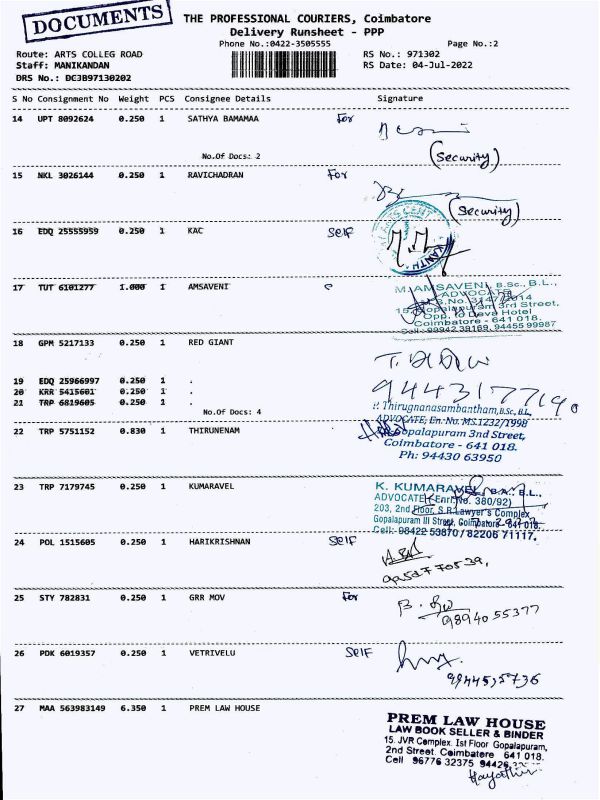 DOCUMENTS
THE PROFESSIONAL COURIERS, Coimbatore
Delivery Runsheet - PPP
Phone No.:0422-3505555
Page No.:2
Route: ARTS COLLEG ROAD
RS No.: 971302
Staff: MANIKANDAN
RS Date: 04-Jul-2022
DRS No.: DCJB97130202
S No Consignment No Weight PCS Consignee Details Signature
14 UPT 8092624 0.250 1 SATHYA BAMAMAA For
No.Of Docs: 2
(Security)
15 NKL 3026144 0.250 1 RAVICHADRAN For
(Security)
16 EDQ 25555959 0.250 1 KAC Self
17 TUT 6101277 1.000 1 AMSAVENI
M. AMSAVENI, B.Sc., B.L.,
ADVOCATE
3rd Street,
Opp. to Deva Hotel
Coimbatore - 641 018.
Cell: 99942 39169, 94455 99987
18 GPM 5217133 0.250 1 RED GIANT
19 EDQ 25966997 0.250 1 .
20 KRR 5415601 0.250 1 .
21 TRP 6819605 0.250 1 .
No.Of Docs: 4
9443177190
P. Thirugnanasambantham, B.Sc, B.L,
ADVOCATE, En. No. MS.1232/1998
22 TRP 5751152 0.830 1 THIRUNENAM
Gopalapuram 3nd Street,
Coimbatore - 641 018.
Ph: 94430 63950
23 TRP 7179745 0.250 1 KUMARAVEL
K. KUMARAVEL, B.A., B.L.,
ADVOCATE (Enrl No. 380/92)
203, 2nd Floor, S.R.Lawyer's Complex
Gopalapuram III Street, Coimbatore - 641 018.
Cell: 98422 53870 / 82206 71117.
24 POL 1515605 0.250 1 HARIKRISHNAN Self
25 STY 782831 0.250 1 GRR MOV For
9894055377
26 PDK 6019357 0.250 1 VETRIVELU Self
27 MAA 563983149 6.350 1 PREM LAW HOUSE
PREM LAW HOUSE
LAW BOOK SELLER & BINDER
15. JVR Complex. Ist Floor Gopalapuram,
2nd Street. Coimbatore 641 018.
Cell 96776 32375 94426